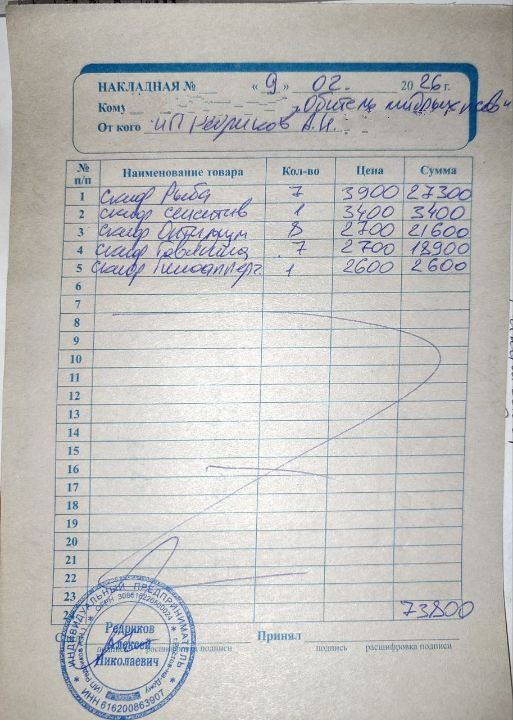 НАКЛАДНАЯ № « 9 » 02. 2026 г.
Кому „Обитель добрых
От кого ИП Редриков А.Н.
№ п/п Наименование товара Кол-во Цена Сумма
1 Скиф Рыба 7 3900 27300
2 Скиф сенситив 1 3400 3400
3 Скиф Оптимум 8 2700 21600
4 Скиф Говядина 7 2700 18900
5 Скиф Гипоаллерг 1 2600 2600
6
7
8
9
10
11
12
13
14
15
16
17
18
19
20
21
22
23
73800
Принял
подпись расшифровка подписи подпись расшифровка подписи
ИНДИВИДУАЛЬНЫЙ ПРЕДПРИНИМАТЕЛЬ
Редриков
Алексей
Николаевич
ИНН 616200863907